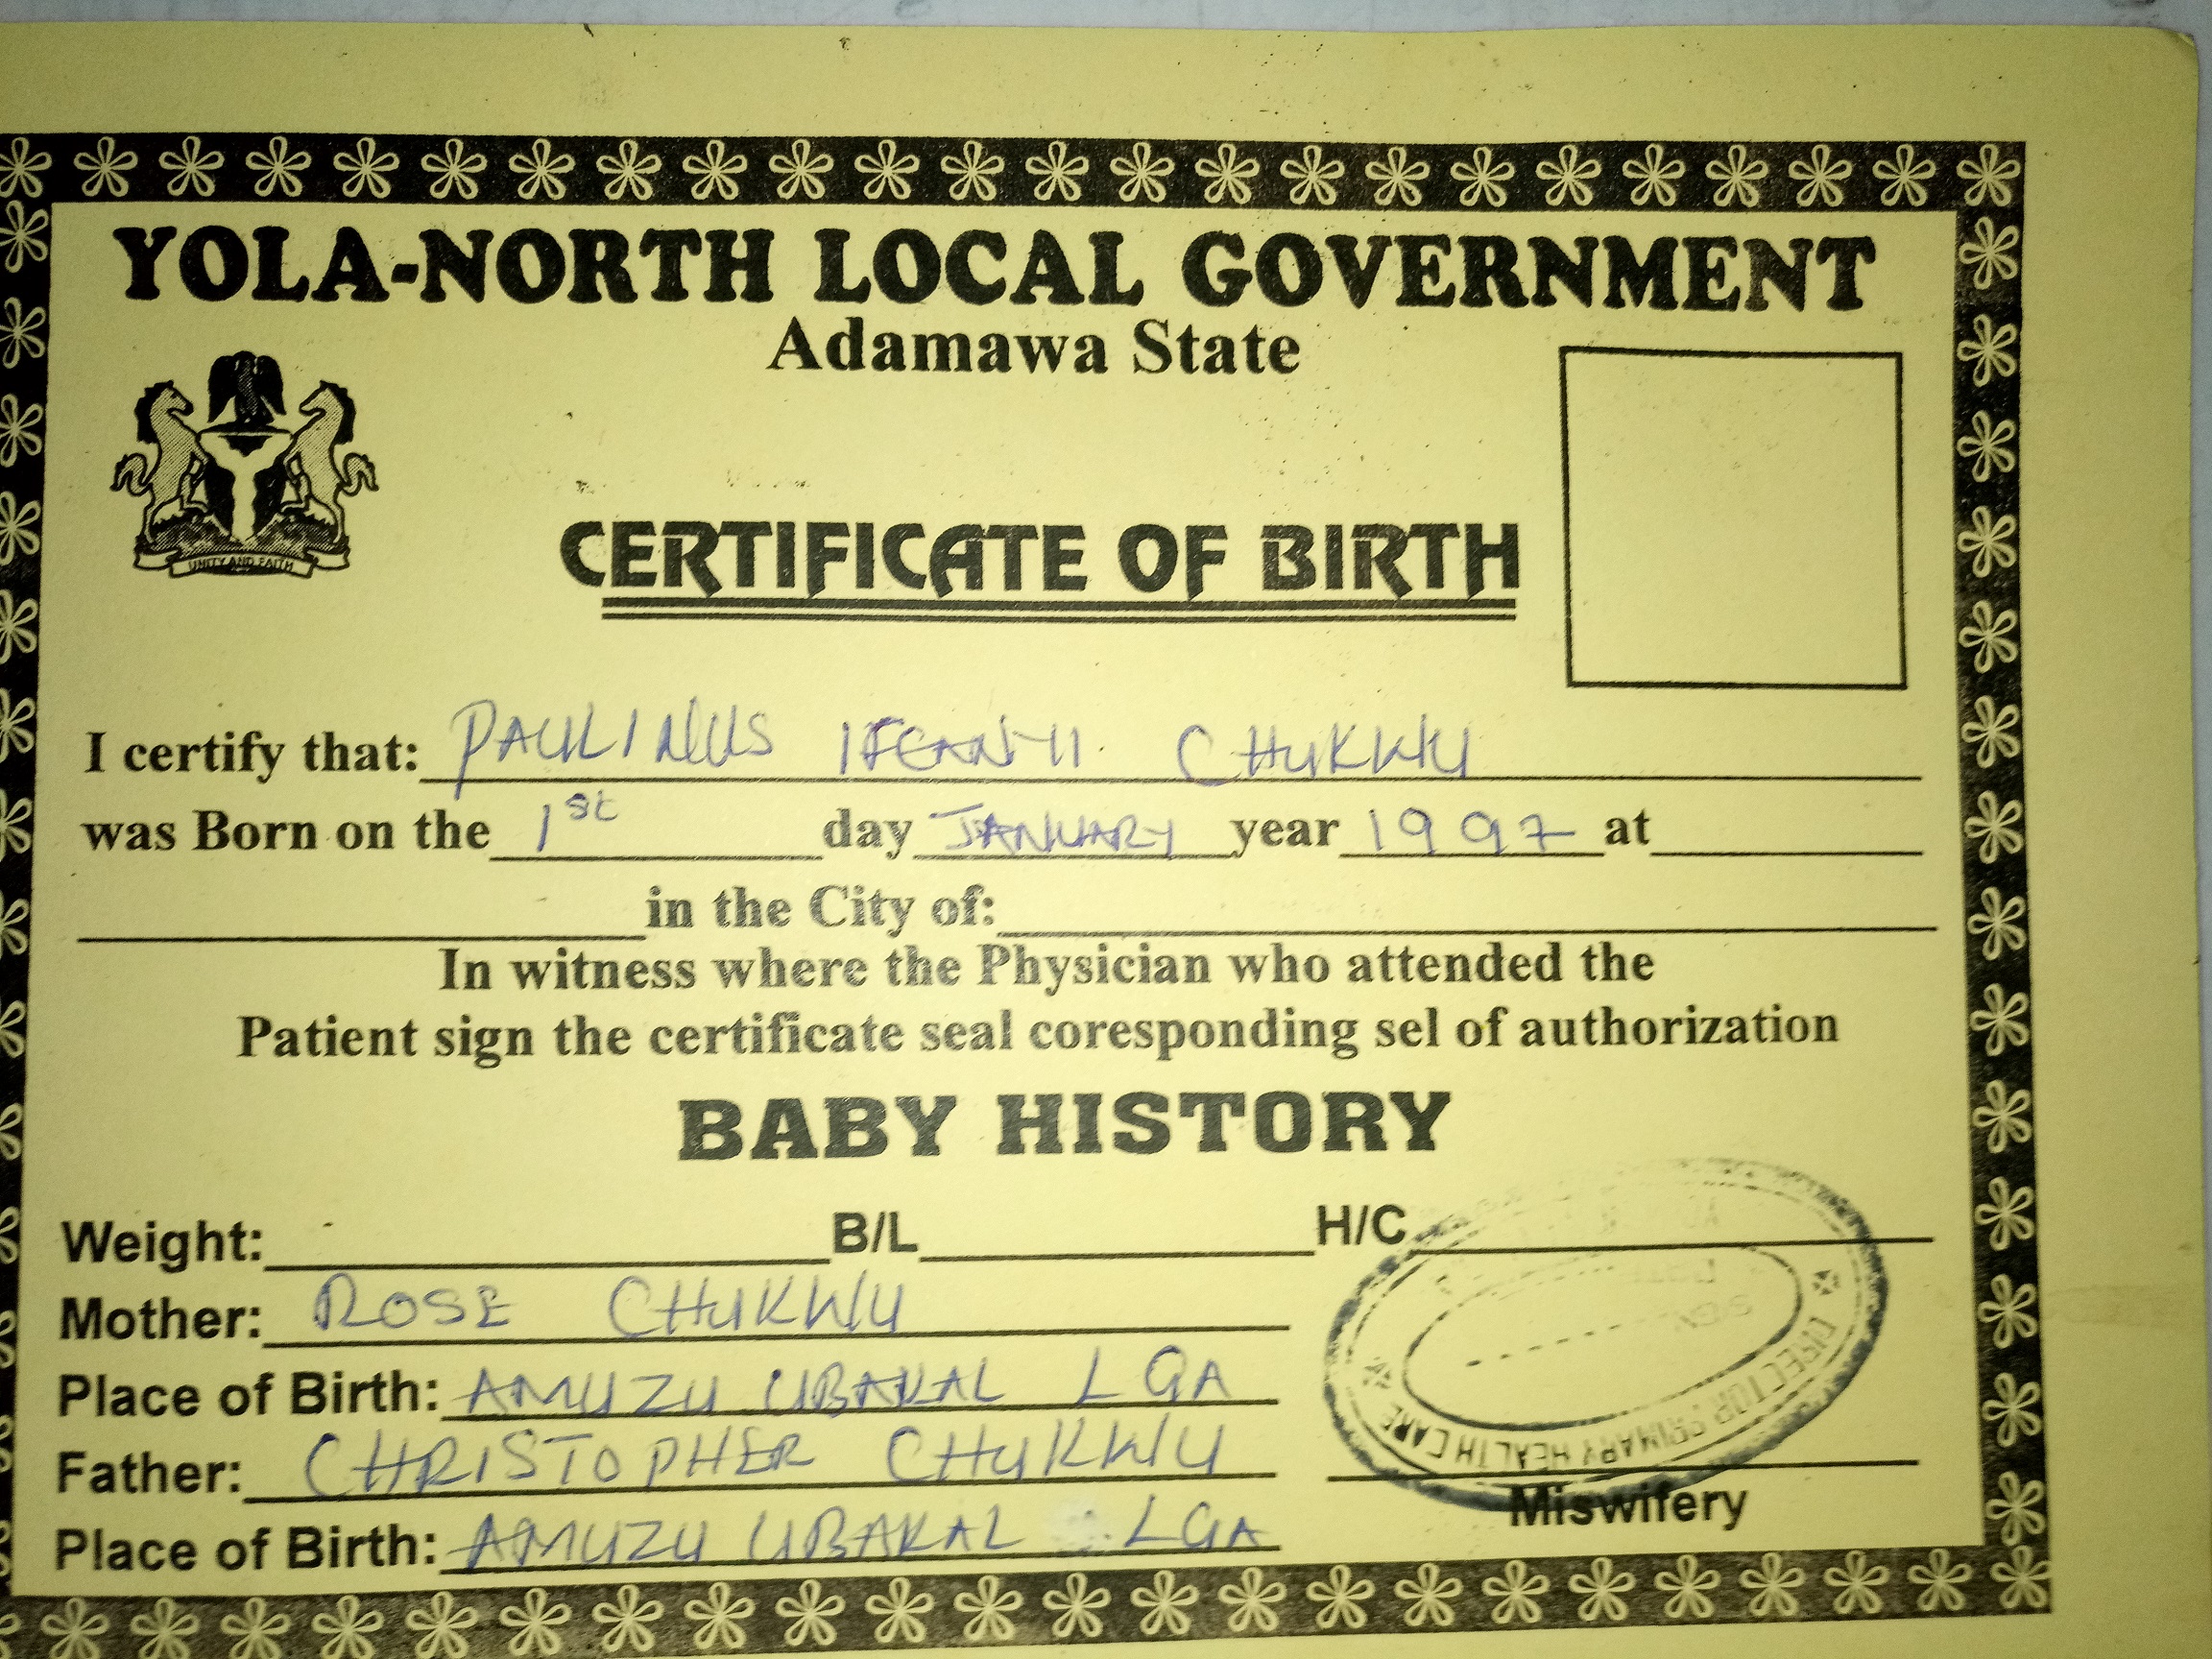 YOLA-NORTH LOCAL GOVERNMENT
Adamawa State
UNITY AND FAITH
CERTIFICATE OF BIRTH
I certify that: PAULINUS IFEANYI CHUKWU
was Born on the 1st day JANUARY year 1997 at
in the City of:
In witness where the Physician who attended the
Patient sign the certificate seal coresponding sel of authorization
BABY HISTORY
Weight: B/L H/C
Mother: ROSE CHUKWU
Place of Birth: AMUZU UBAKAL LGA
Father: CHRISTOPHER CHUKWU
Place of Birth: AMUZU UBAKAL LGA
DIRECTOR PRIMARY HEALTH CARE
SIGN
Miswifery